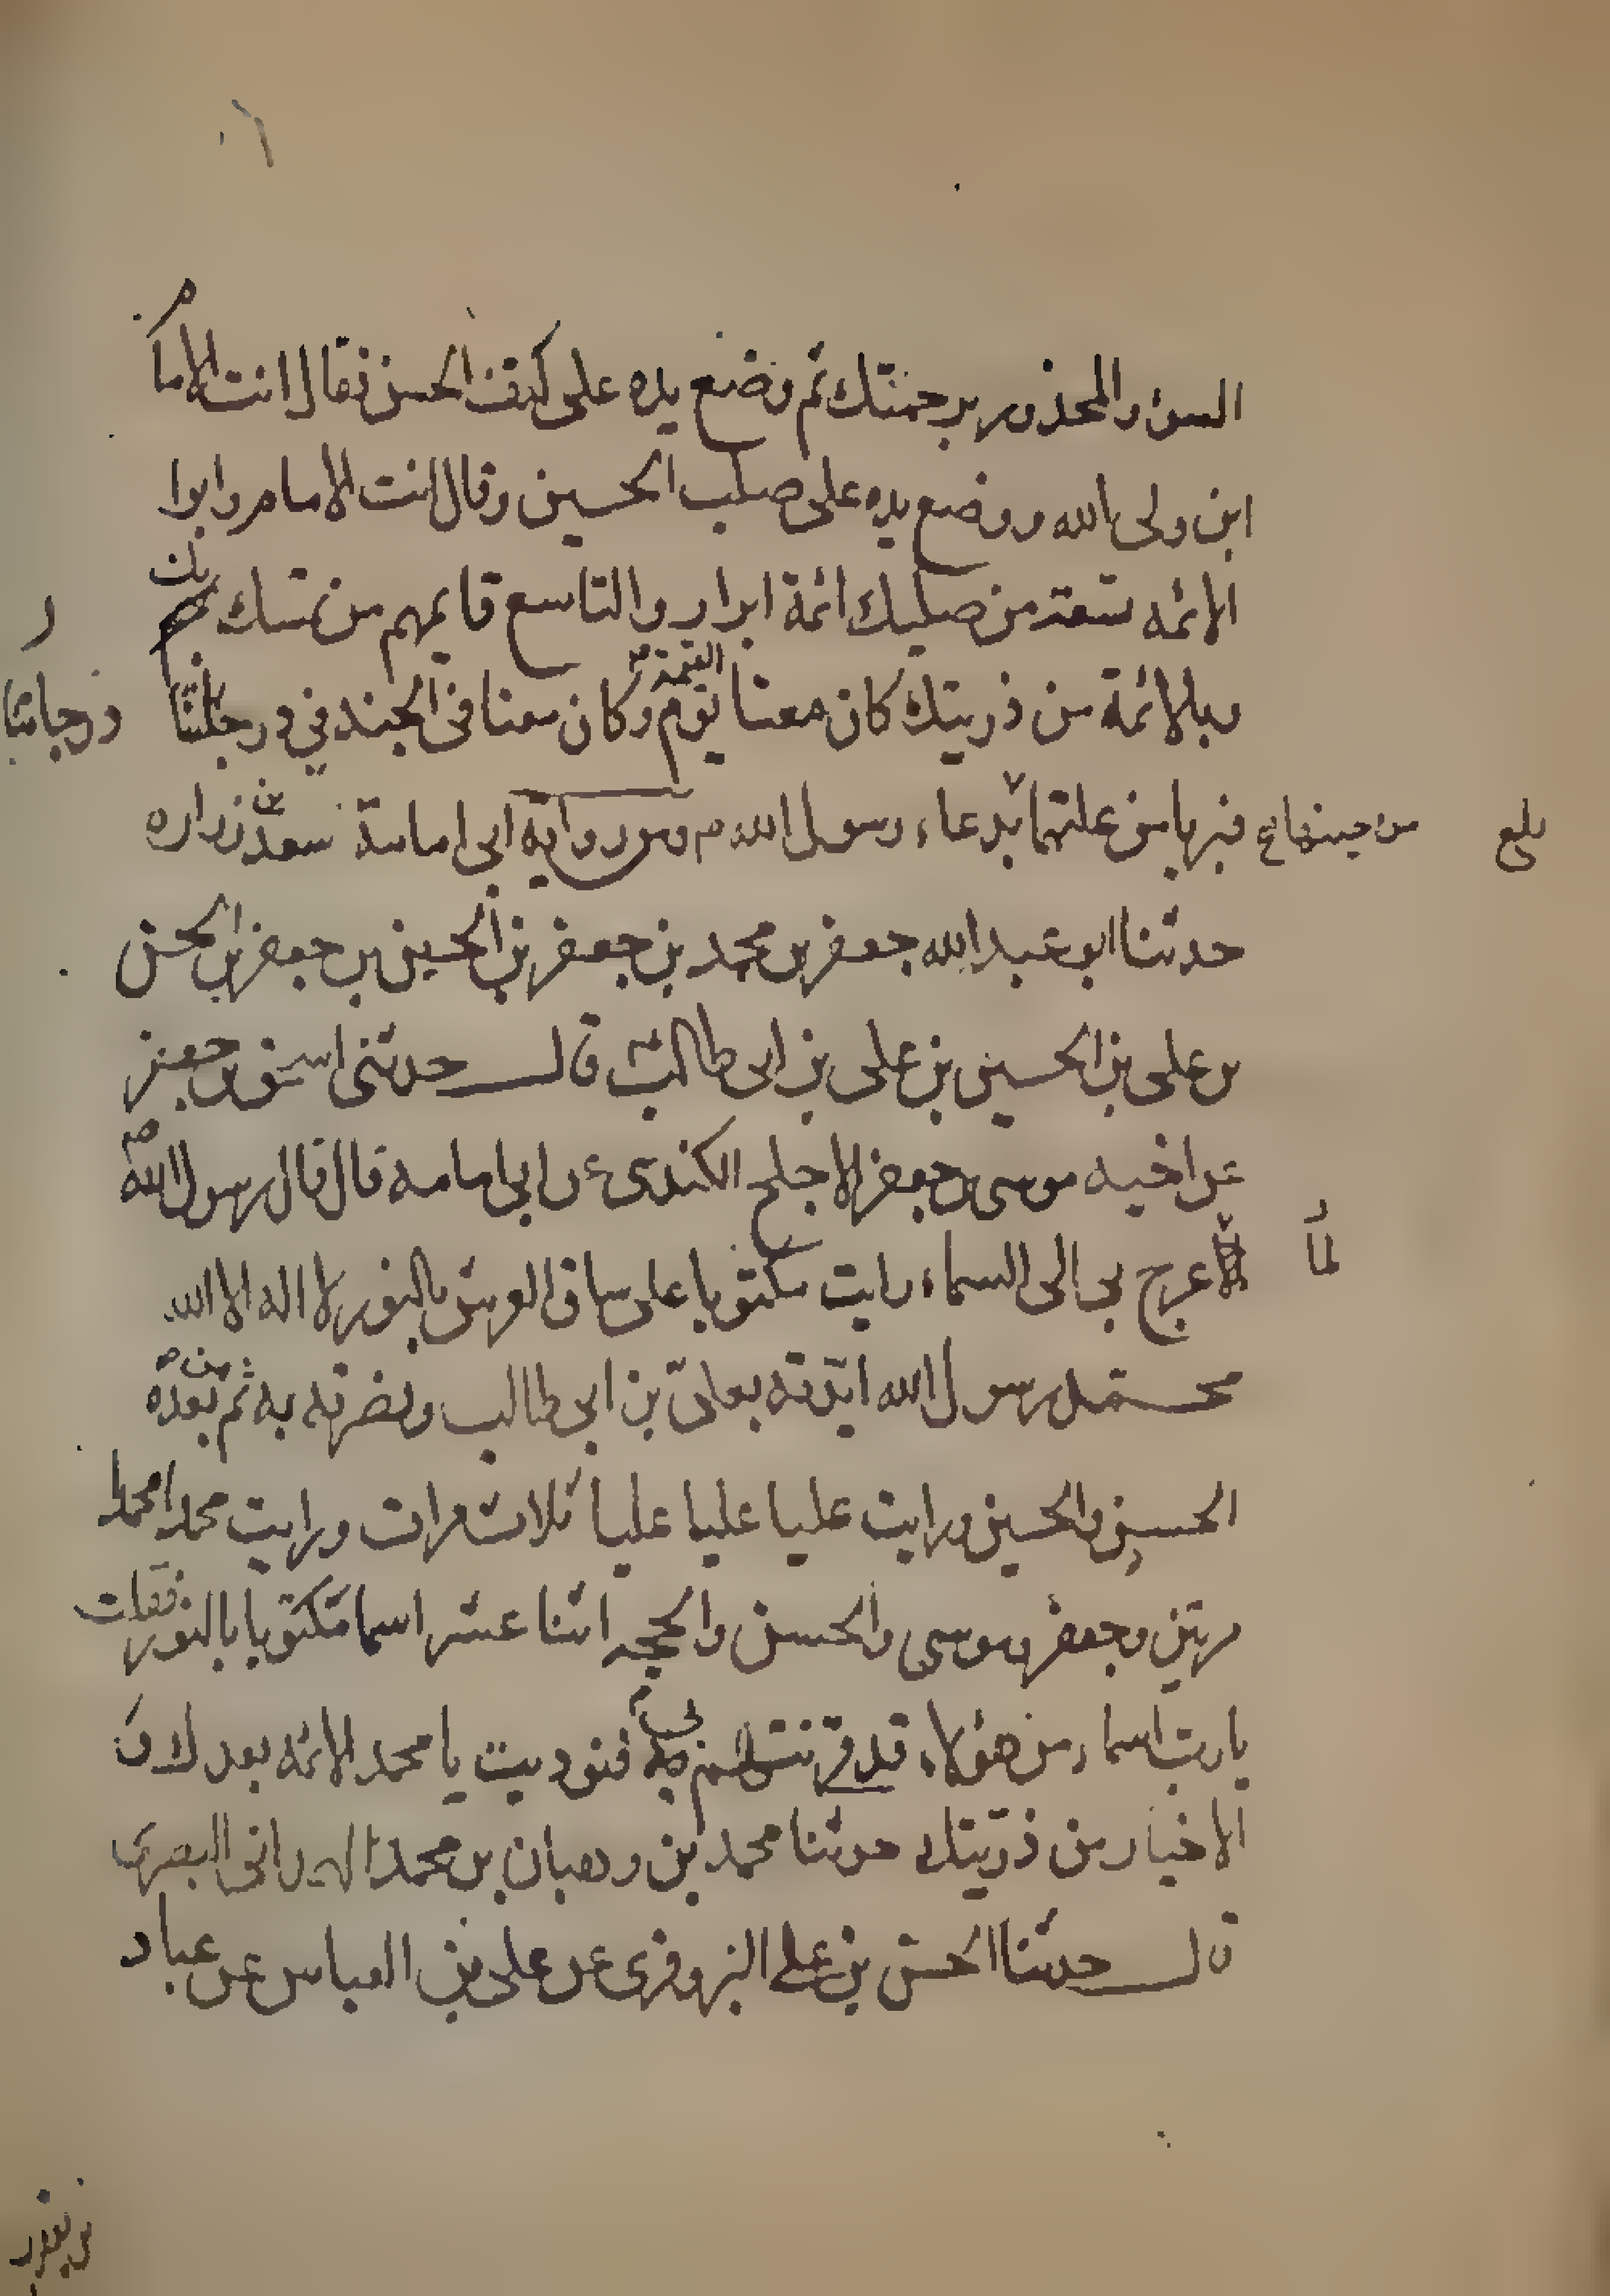 السوء والمحذور برحمتك ثم وضع يده على كتف الحسن فقال انت الامام
ابن ولى الله ووضع يده على صلب الحسين وقال انت الامام وابوا
الائمه تسعة من صلبك ائمة ابرار والتاسع قايمهم من تمسك بك
وبالائمة من ذريتك كان معنا يوم القيمة وكان معنا فى الجنه في درجاتنا
درجاتنا
فبريا من علتهما بدعاء رسول الله ومن رواية ابى امامة سعد بن زراره
بلغ
حدثنا ابو عبد الله جعفر بن محمد بن جعفر بن الحسين بن جعفر بن الحسن
بن على بن الحسين بن على بن ابى طالب قال حدثنى اسحق بن جعفر
عن اخيه موسى بن جعفر الاجلح الكندى عن ابى امامه قال قال رسول الله ص
لما
لما عرج بى الى السماء رايت مكتوبا على ساق العرش بالنور لا اله الا الله
محمد رسول الله ايدته بعلى بن ابى طالب ونصرته به ثم بعده
الحسن والحسين ورايت عليا عليا عليا ثلاث مرات ورايت محمدا محمدا
مرتين وجعفر وموسى والحسن والحجه اثنا عشر اسما مكتوبا بالنور فقلت
يا رب اسماء من هؤلاء قد قرنتهم بى فنوديت يا محمد الائمه بعدك
الاخيار من ذريتك حدثنا محمد بن وهبان بن محمد البصرى
قال حدثنا الحسن بن على البزوفرى عن على بن العباس عن عباد